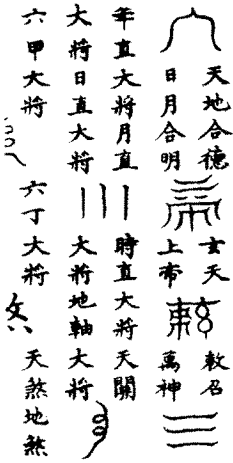 天地合德
日月合明
玄天
上帝
敕召
萬神
年直大將月直
大將日直大將
時直大將天關
大將地軸大將
六甲大將
六丁大將
天煞地煞